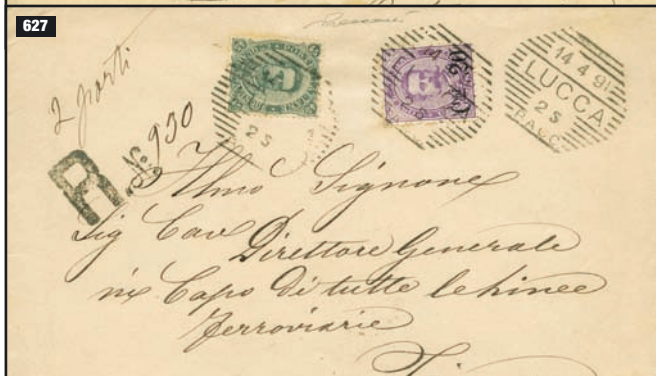 627
2 porti
R
No 930
14 4 91
LUCCA
2 S
PACC
Illmo Signore
Sig Cav Direttore Generale
in Capo Di tutte le Linee
Ferroviarie